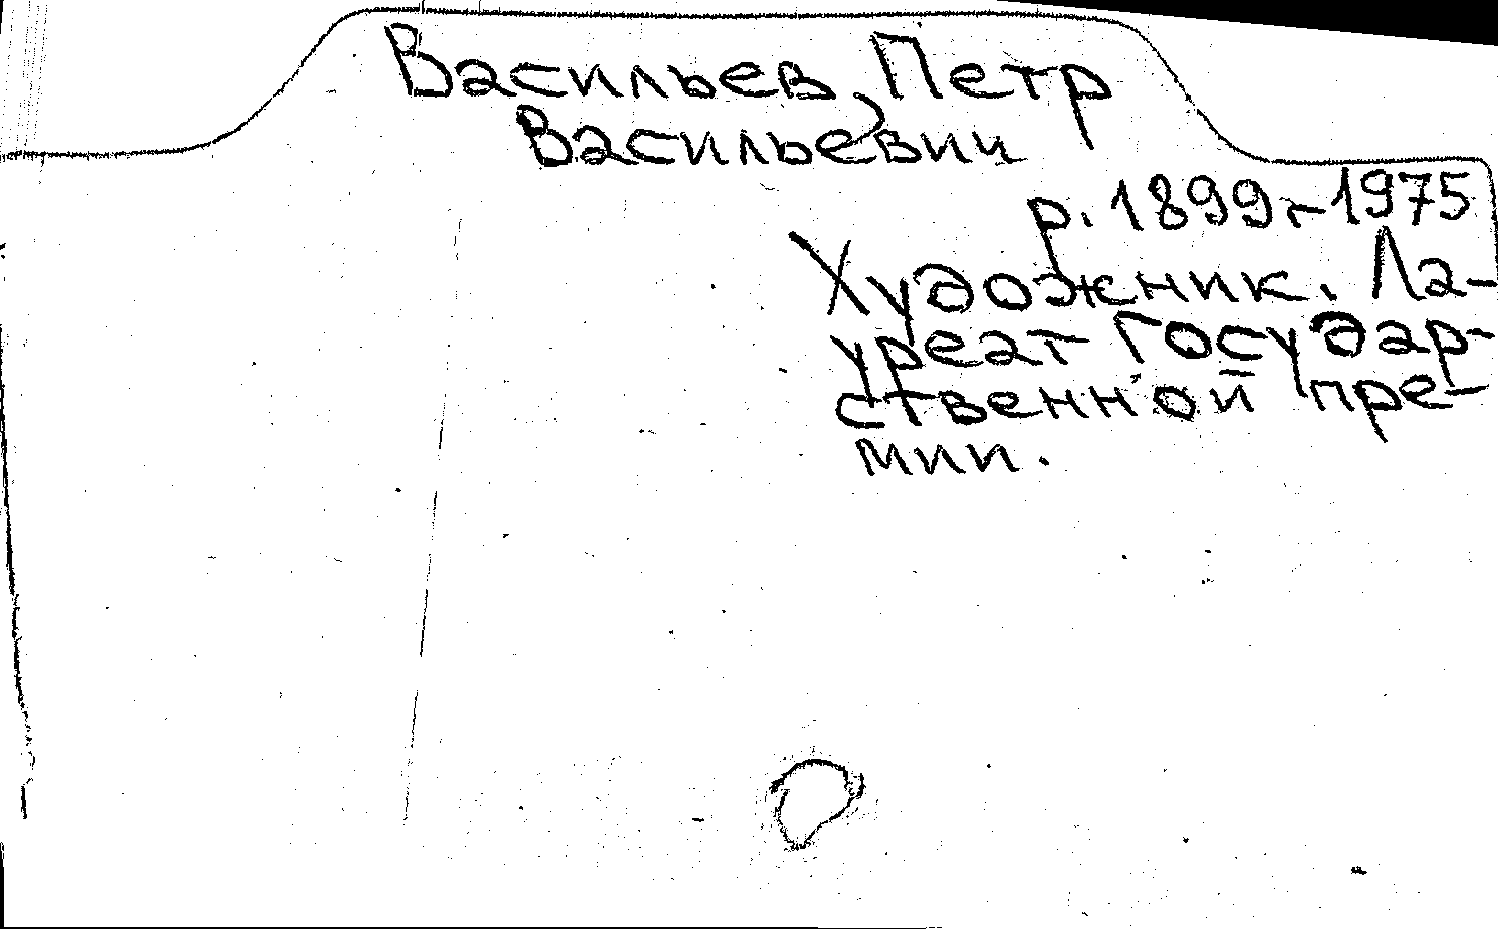 Васильев, Петр
Васильевич
р. 1899 г.-1975
Художник. Ла-
уреат Государ-
ственной пре-
мии.